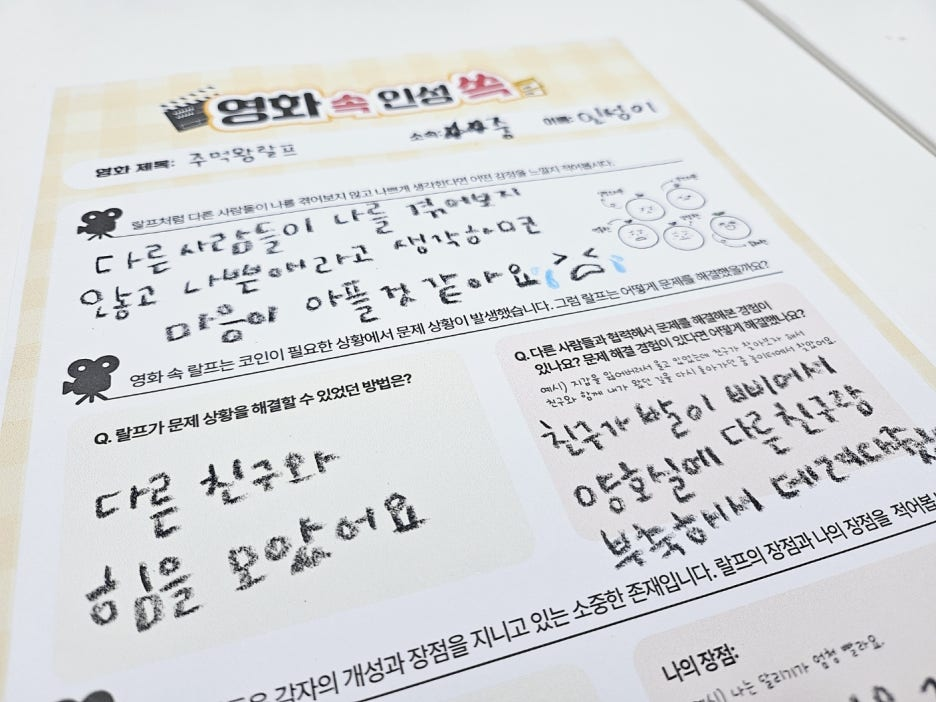 영화 속 인성 쏙
영화 제목: 주먹왕랄프
소속: 중
이름: 인성이
랄프처럼 다른 사람들이 나를 겪어보지 않고 나쁘게 생각한다면 어떤 감정을 느낄지 적어봅시다.
다른 사람들이 나를 겪어보지
않고 나쁜애라고 생각하면
마음이 아플것 같아요
영화 속 랄프는 코인이 필요한 상황에서 문제 상황이 발생했습니다. 그럼 랄프는 어떻게 문제를 해결했을까요?
Q. 랄프가 문제 상황을 해결할 수 있었던 방법은?
다른 친구와
힘을 모았어요
Q. 다른 사람들과 협력해서 문제를 해결해본 경험이
있나요? 문제 해결 경험이 있다면 어떻게 해결했나요?
예시) 지갑을 잃어버려서 울고 있었는데 친구가 찾아보자 해서
친구와 함께 내가 왔던 길을 다시 돌아가던 중 놀이터에서 찾았어요.
친구가 발이 삐어서
양호실에 다른친구랑
부축해서 데려다줬
각자의 개성과 장점을 지니고 있는 소중한 존재입니다. 랄프의 장점과 나의 장점을 적어봅
나의 장점:
예시) 나는 달리기가 엄청 빨라요.